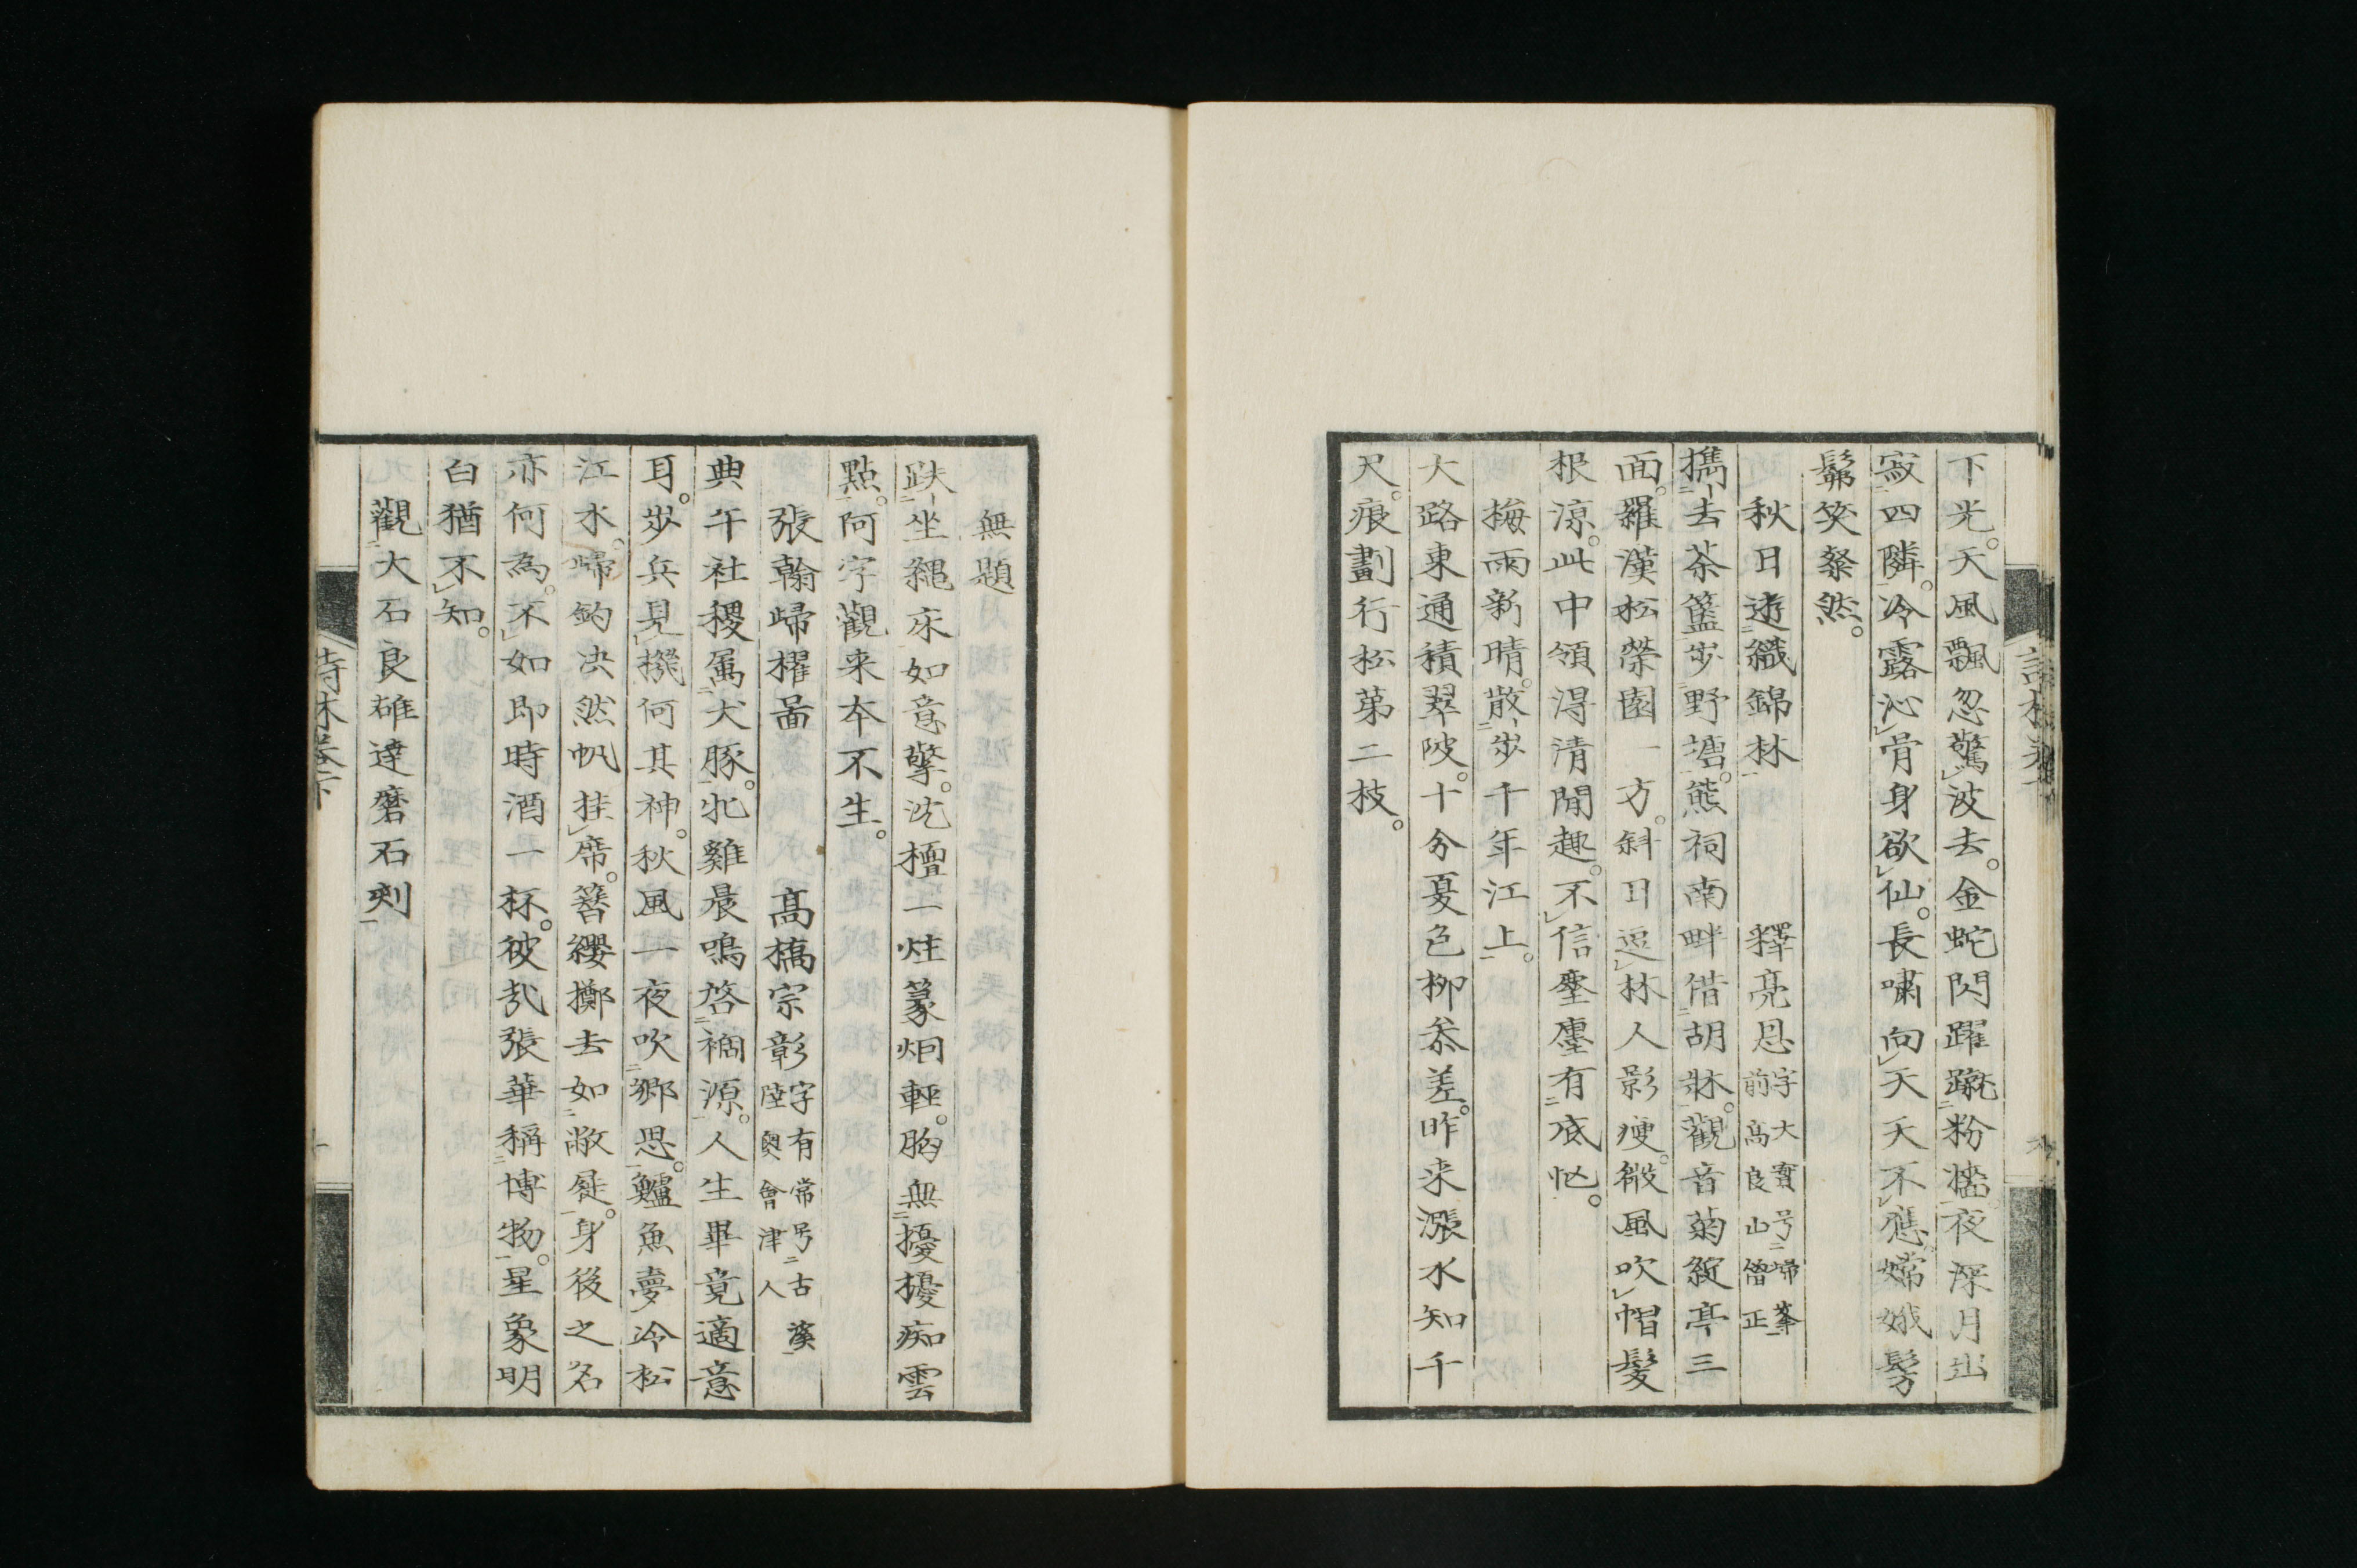 下光。天風飄忽驚波去。金蛇閃躍蹴粉墻。夜深月出
寂四隣。冷露沁骨身欲仙。長嘯向天天不應。嫦娥鬢
鬅笑粲然。
秋日遊織錦林 釋亮恩 字大寶号歸峯 前高良山僧正
携去茶籃步野塘。熊祠南畔借胡牀。觀音菊綻亭三
面。羅漢松榮園一方。斜日逗林人影瘦。微風吹帽髮
根涼。此中領得清閒趣。不信塵塵有底忙。
梅雨新晴。散步千年江上。
大路東通積翠陂。十分夏色柳叅差。昨来漲水知千
尺。痕劃行松第二枝。
無題
趺坐縄床如意擎。沈檀一炷篆烟輕。胸無擾擾痴雲
點。阿字觀来本不生。
張翰歸櫂啚 髙橋宗彰 字有常号古溪 陸奧會津人
典午社稷属犬豚。牝雞晨鳴啓禍源。人生畢竟適意
耳。步兵見機何其神。秋風一夜吹郷思。鱸魚夢冷松
江水。歸釣决然帆挂席。簪纓擲去如敝屣。身後之名
亦何為。不如即時酒一杯。彼哉張華稱博物。星象明
白猶不知。
觀大石良雄達磨石刻
詩林卷下